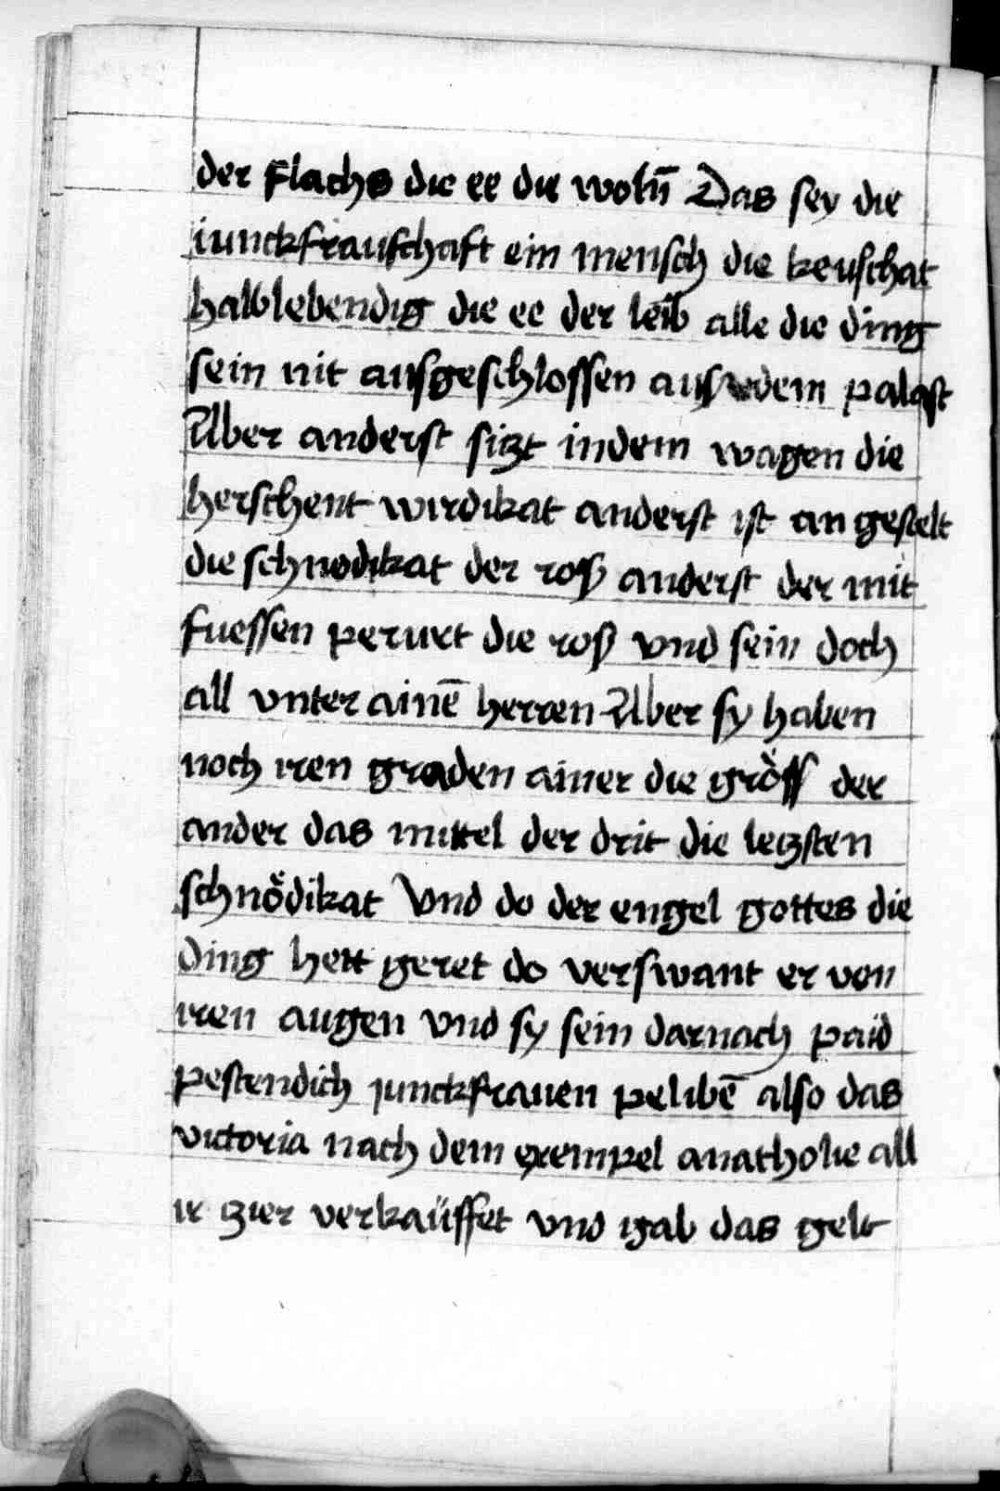 der flachs die ee die woln̄ Das sey die
iunckfrauschaft ein mensch die keuschat
halblebendig die ee der leib alle die ding
sein nit ausgeschlossen aus dem palast
Aber anderst sitzt indem wagen die
herschent wirdikat anderst ist an gestelt
die schnodikat der roß anderst der mit
fuessen perurt die roß vnd sein doch
all vnter ainē herren Aber sy haben
noch iren graden ainer die gröss der
ander das mittel der drit die letzsten
schnödikat Vnd do der engel gottes die
ding hett geret do verswant er von
iren augen vnd sy sein darnach paid
pestendich junckfrauen pelibē also das
victoria nach dem exempel anatholie all
ir zier verkaüffet vnd gab das gelt